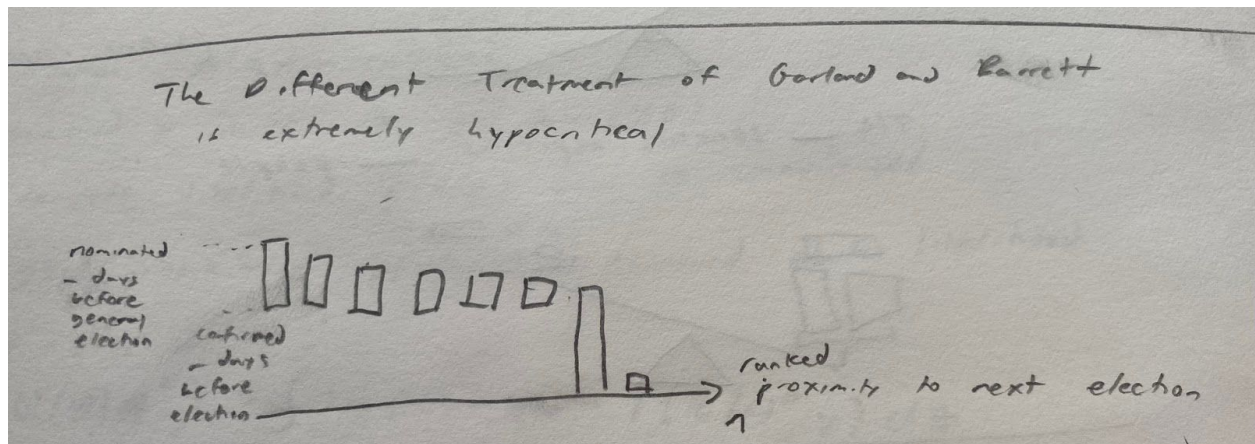 The Different Treatment of Garland and Barrett
is extremely hypocritical
nominated
– days
before
general
election
confirmed
– days
before
election
ranked
proximity to next election